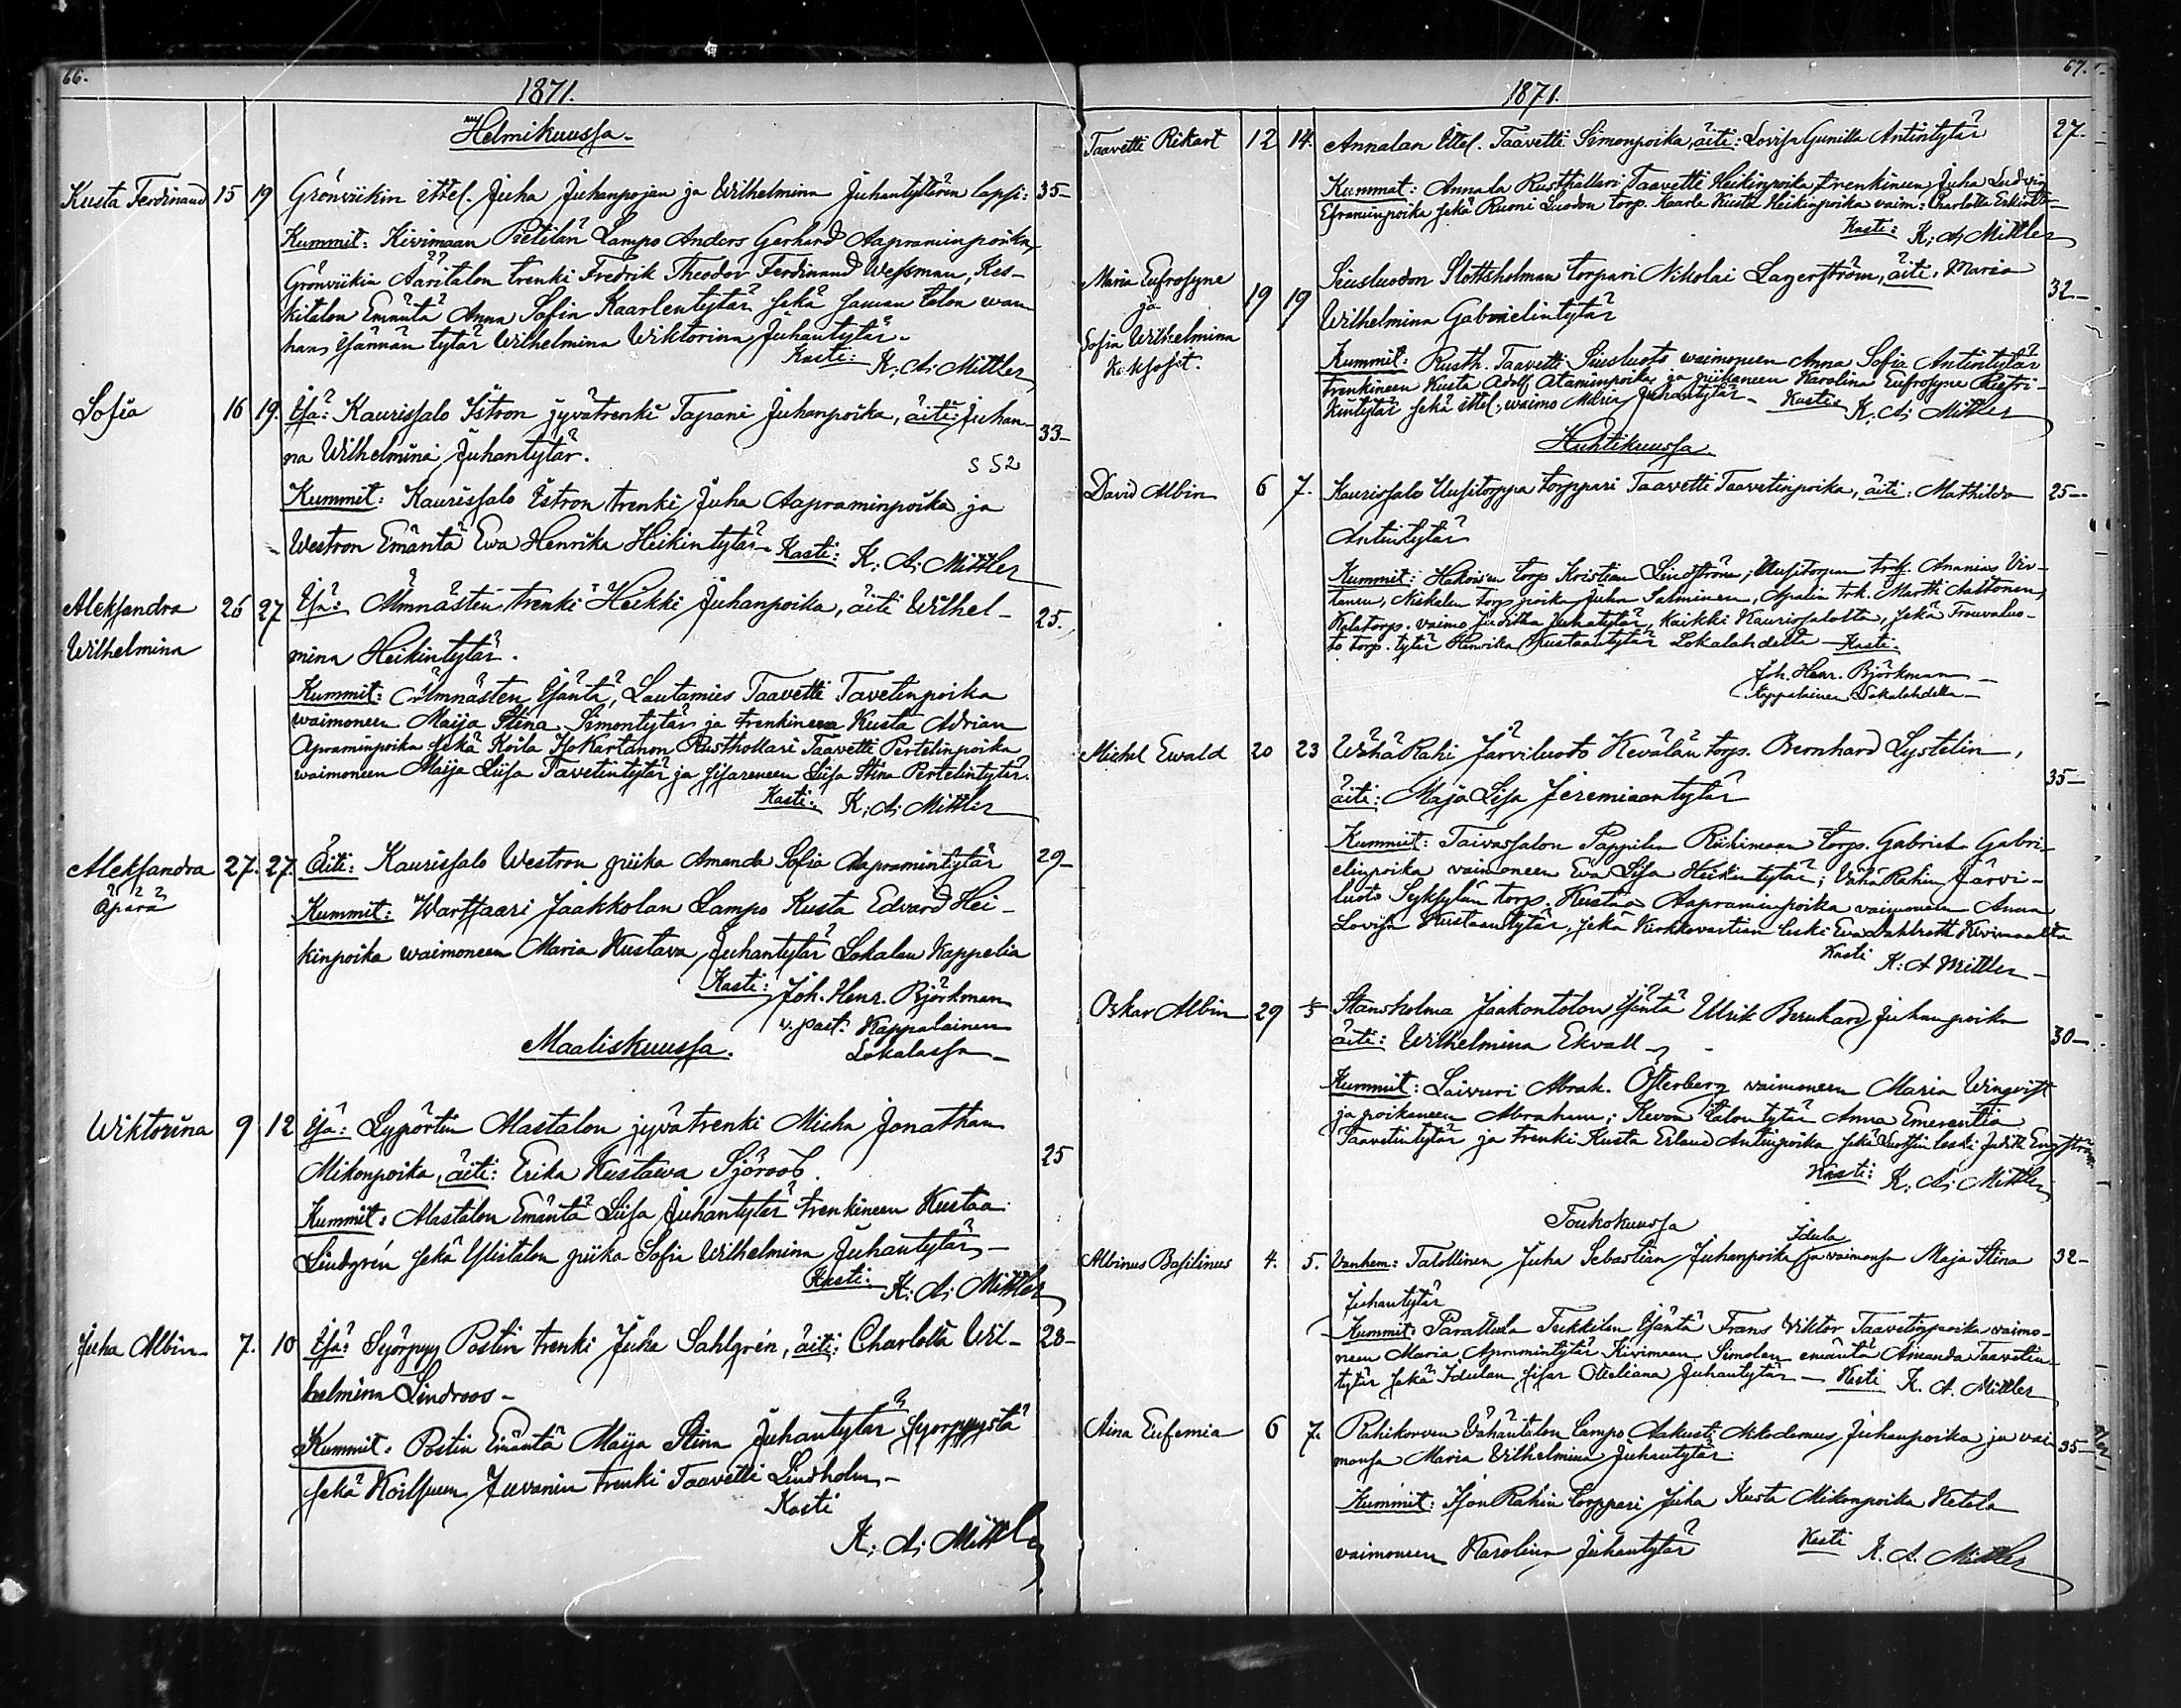 66.
1871.
Helmikuussa.
Kusta Ferdinand 15 19 Grönviikin ittel. Juha Juhanpojan ja Wilhelmina Juhantyttären lapsi: 35-
Kummit: Kivimaan Pietilän Lampo Anders Gerhard Aapraminpoika,
Grönviikin Ääritalon trenki Fredrik Theodor Ferdinand Wessman, Kes-
kitalon Emäntä Anna Sofia Kaarlentytär sekä saman talon wan
han Isännän tytär Wilhelmina Wiktorina Juhantytär.
Kasti: K. A. Mittler
Sofia 16 19. Isä: Kaurissalo Iströn jyvätrenki Tapani Juhanpoika, äiti: Juhan- 33-
na Wilhelmina Juhantytär.
S 52
Kummit: Kaurissalo Iströn trenki Juha Aapraminpoika ja
Westron Emäntä Ewa Henrika Heikintytär. Kasti: K. A. Mittler
Aleksandra Wilhelmina 26 27 Isä: Ämnästen trenki Heikki Juhanpoika, äiti Wilhel- 25.
mina Heikintytär.
Kummit: Ämnästen Isäntä, Lautamies Taavetti Tavetinpoika
waimoneen Maija Stina Simontytär ja trenkineen Kusta Adrian
Apraminpoika sekä Koila Isokartanon Rusthollari Taavetti Pertelinpoika
waimoneen Maija Liisa Tavetintytär ja sisareneen Liisa Stina Pertelintytär.
Kasti: K. A. Mittler
Aleksandra Äpärä 27. 27. Äiti: Kaurissalo Westron piika Amanda Sofia Aapramintytär 29-
Kummit: Wartsaari Jaakkolan Lampo Kusta Edvard Hei-
kinpoika waimoneen Maria Kustava Juhantytär Lokalan Kappelia
Kasti: Joh. Henr. Björkman
v. past. Kappalainen
Lokalassa
Maaliskuussa.
Wiktoriina 9 12 Isä: Lypörtin Alastalon jyvätrenki Micha Jonathan
Mikonpoika, äiti: Erika Kustawa Sjöroos. 25
Kummit: Alastalon Emäntä Liisa Juhantytär trenkineen Kustaa
Lindgrén sekä Ylistalon piika Sofia Wilhelmina Juhantytär
Kasti: K. A. Mittler
Juha Albin 7. 10 Isä: Syörpyy Postin trenki Juha Sahlgrén, äiti: Charlotta Wil- 28-
helmina Lindroos-
Kummit: Postin Emäntä Maija Stina Juhantytär Syörpyystä
sekä Koilsuun Juvanin trenki Taavetti Lindholm-
Kasti
K. A. Mittler
67.
1871.
Taavetti Rikart 12 14. Annalan Ittel. Taavetti Simonpoika, äiti: Lovisa Gunilla Antintytär 27.
Kummat: Annala Rusthallari Taavetti Heikinpoika trenkineen Juha Ludvig
Efraiminpoika sekä Ruoni Luodon torp. Kaarle Kusta Heikinpoika vaim: Charlotta
Kasti: K. A. Mittler
Maria Eufrosyne ja Sofia Wilhelmina 19 19 Siusluodon Slottsholman torpari Nikolai Lagerström, äiti: Maria 32-
Wilhelmina Gabrielintytär
Kummit: Rusth. Taavetti Siusluoto waimoneen Anna Sofia Antintytär
trenkineen Kusta Adolf Ataminpoika ja piikaneen Karolina Eufrosyne Rieti-
kintytär sekä ittel. waimo Maria Juhantytär. Kasti: K. A. Mittler
Huhtikuussa
David Albin 6 7. Kaurissalo Uusitorppa torppari Taavetti Taavetinpoika, äiti: Mathilda 25-
Antintytär
Kummit: Hakoisen torp Kristian Lindström, Uusitorpan Ananias Vir-
tanen, Niskalan torp poika Juha Salminen, Apalin trk. Marth Aaltonen,
Kalatorp. vaimo Juditha Juhatytär, kaikki Kaurissalosta, sekä
torp. tytär Henrika Kustaantytär Lokalahdella Kasti:
Joh. Henr. Björkman
Kappalainen Lokalahdella
Michel Ewald 20 23 WähäRahi Järviluoto Kevälän torp. Bernhard Lystelin,
äiti: Maja Lisa Jeremiaantytär 35-
Kummit: Taivassalon Pappilan Riihimaan torp. Gabriel Gabri-
elinpoika vaimoneen Ewa Lisa Heikintytär; VähäRahin Järvi-
luoto Syksylän torp. Kustaa Aapraminpoika vaimoneen Anna
Lovisa Kustaantytär, sekä Kirkkovartian leski Ewa Dahlroth Kivimaalta
Kasti K. A. Mittler
Oskar Albin 29 Stansholma Jaakontalon Isäntä Ulrik Bernhard Juhanpoika
äiti: Wilhelmina Ekvall 30-
Kummit: Laivuri Abrah. Österberg vaimoneen Maria Winqvist
ja poikaneen Abraham; Kevon talon tytär Anna Emerentia
Taavetintytär ja trenki Kusta Erland Antinpoika sekä leski Judith Engström
Kasti: K. A. Mittler
Toukokuussa
Idula
Albinus Basilinus 4. 5. Vanhem: Talollinen Juha Sebastian Juhanpoika ja vaimonsa Maja Stina 32-
Juhantytär
Kummit: Parattula Tukkilan Isäntä Frans Viktor Taavetinpoika vaimo-
neen Maria Apramintytär Kivimaan Simolan emäntä Amanda Taavetin-
tytär sekä Idulan sisar Otteliana Juhantytär Kasti K. A. Mittler
Aina Eufemia 6 7. Rahikorven Vähäntalon Lampo Aakusti Nikodemus Juhanpoika ja vai- 35-
monsa Maria Wilhelmina Juhantytär.
Kummit: Ison Rahin torppari Juha Kusta Mikonpoika Ketola
vaimoneen Karolina Juhantytär Kasti K. A. Mittler